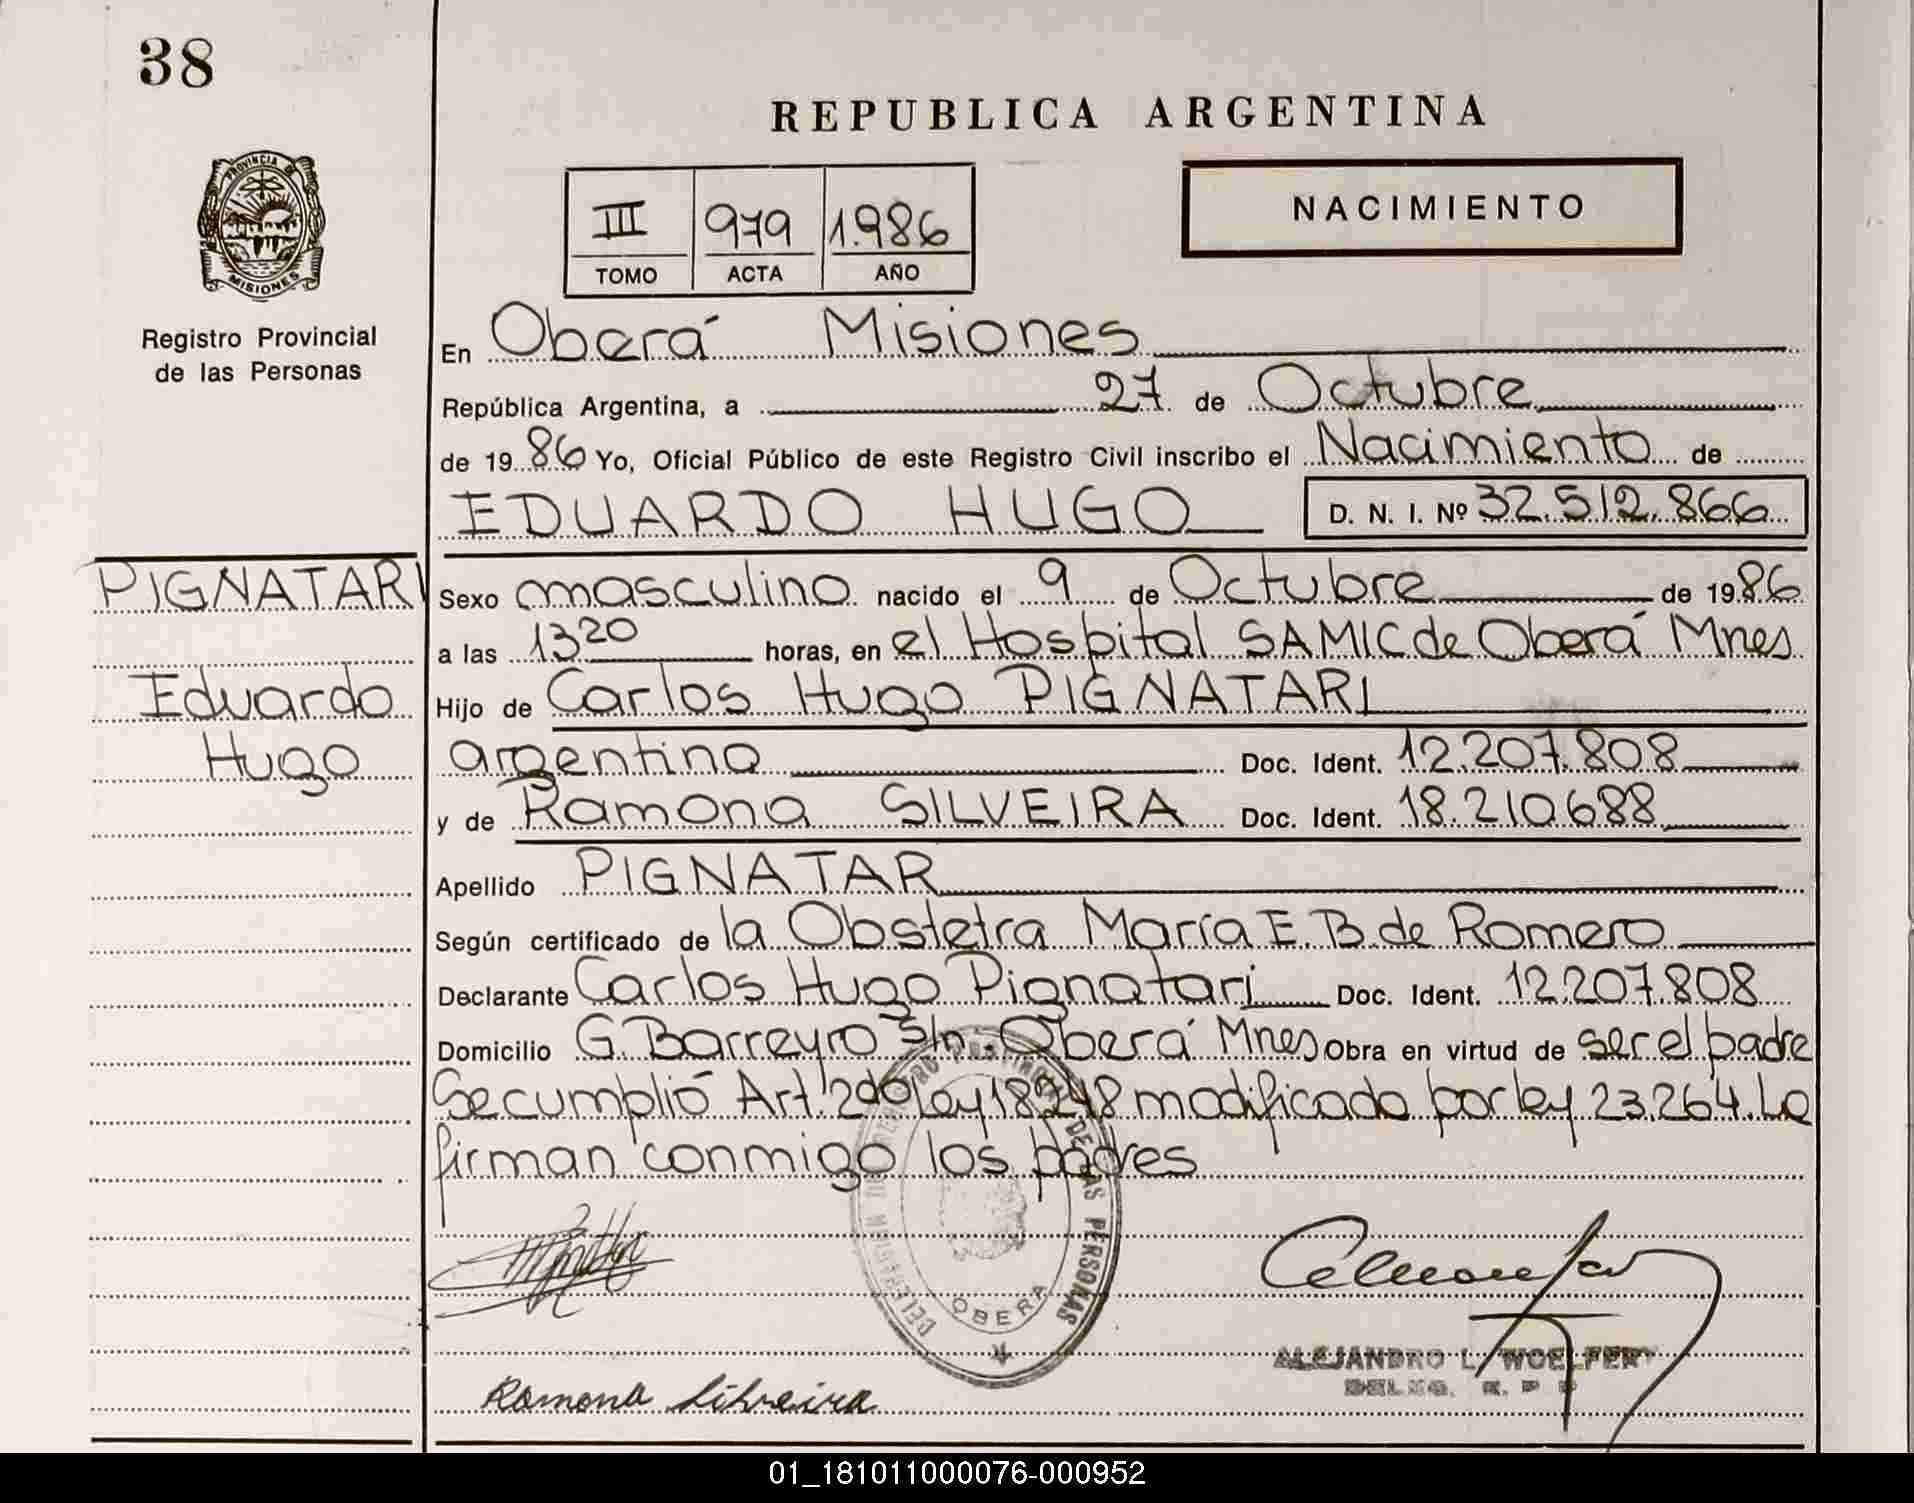 38
REPUBLICA ARGENTINA
PROVINCIA DE
MISIONES
III 979 1.986
TOMO ACTA AÑO
NACIMIENTO
Registro Provincial
de las Personas
En Oberá Misiones
República Argentina, a 27 de Octubre
de 1986 Yo, Oficial Público de este Registro Civil inscribo el Nacimiento de
EDUARDO HUGO D. N. I. Nº 32.512.866
PIGNATARI
Eduardo
Hugo
Sexo masculino nacido el 9 de Octubre de 1986
a las 13 20 horas, en el Hospital SAMIC de Oberá Mnes
Hijo de Carlos Hugo PIGNATARI
argentino Doc. Ident. 12.207.808
y de Ramona SILVEIRA Doc. Ident. 18.210.688
Apellido PIGNATAR
Según certificado de la Obstetra María E. B. de Romero
Declarante Carlos Hugo Pignatari Doc. Ident. 12.207.808
Domicilio G. Barreyro s/n. Oberá Mnes Obra en virtud de ser el padre
Se cumplió Art. 2do ley 18248 modificado por ley 23.264. La
firman conmigo los padres
DELEGACION DE LAS PERSONAS
OBERA
Ramona Silveira
ALEJANDRO L. WOELFERT
DELEG. R. P. P
01_181011000076-000952